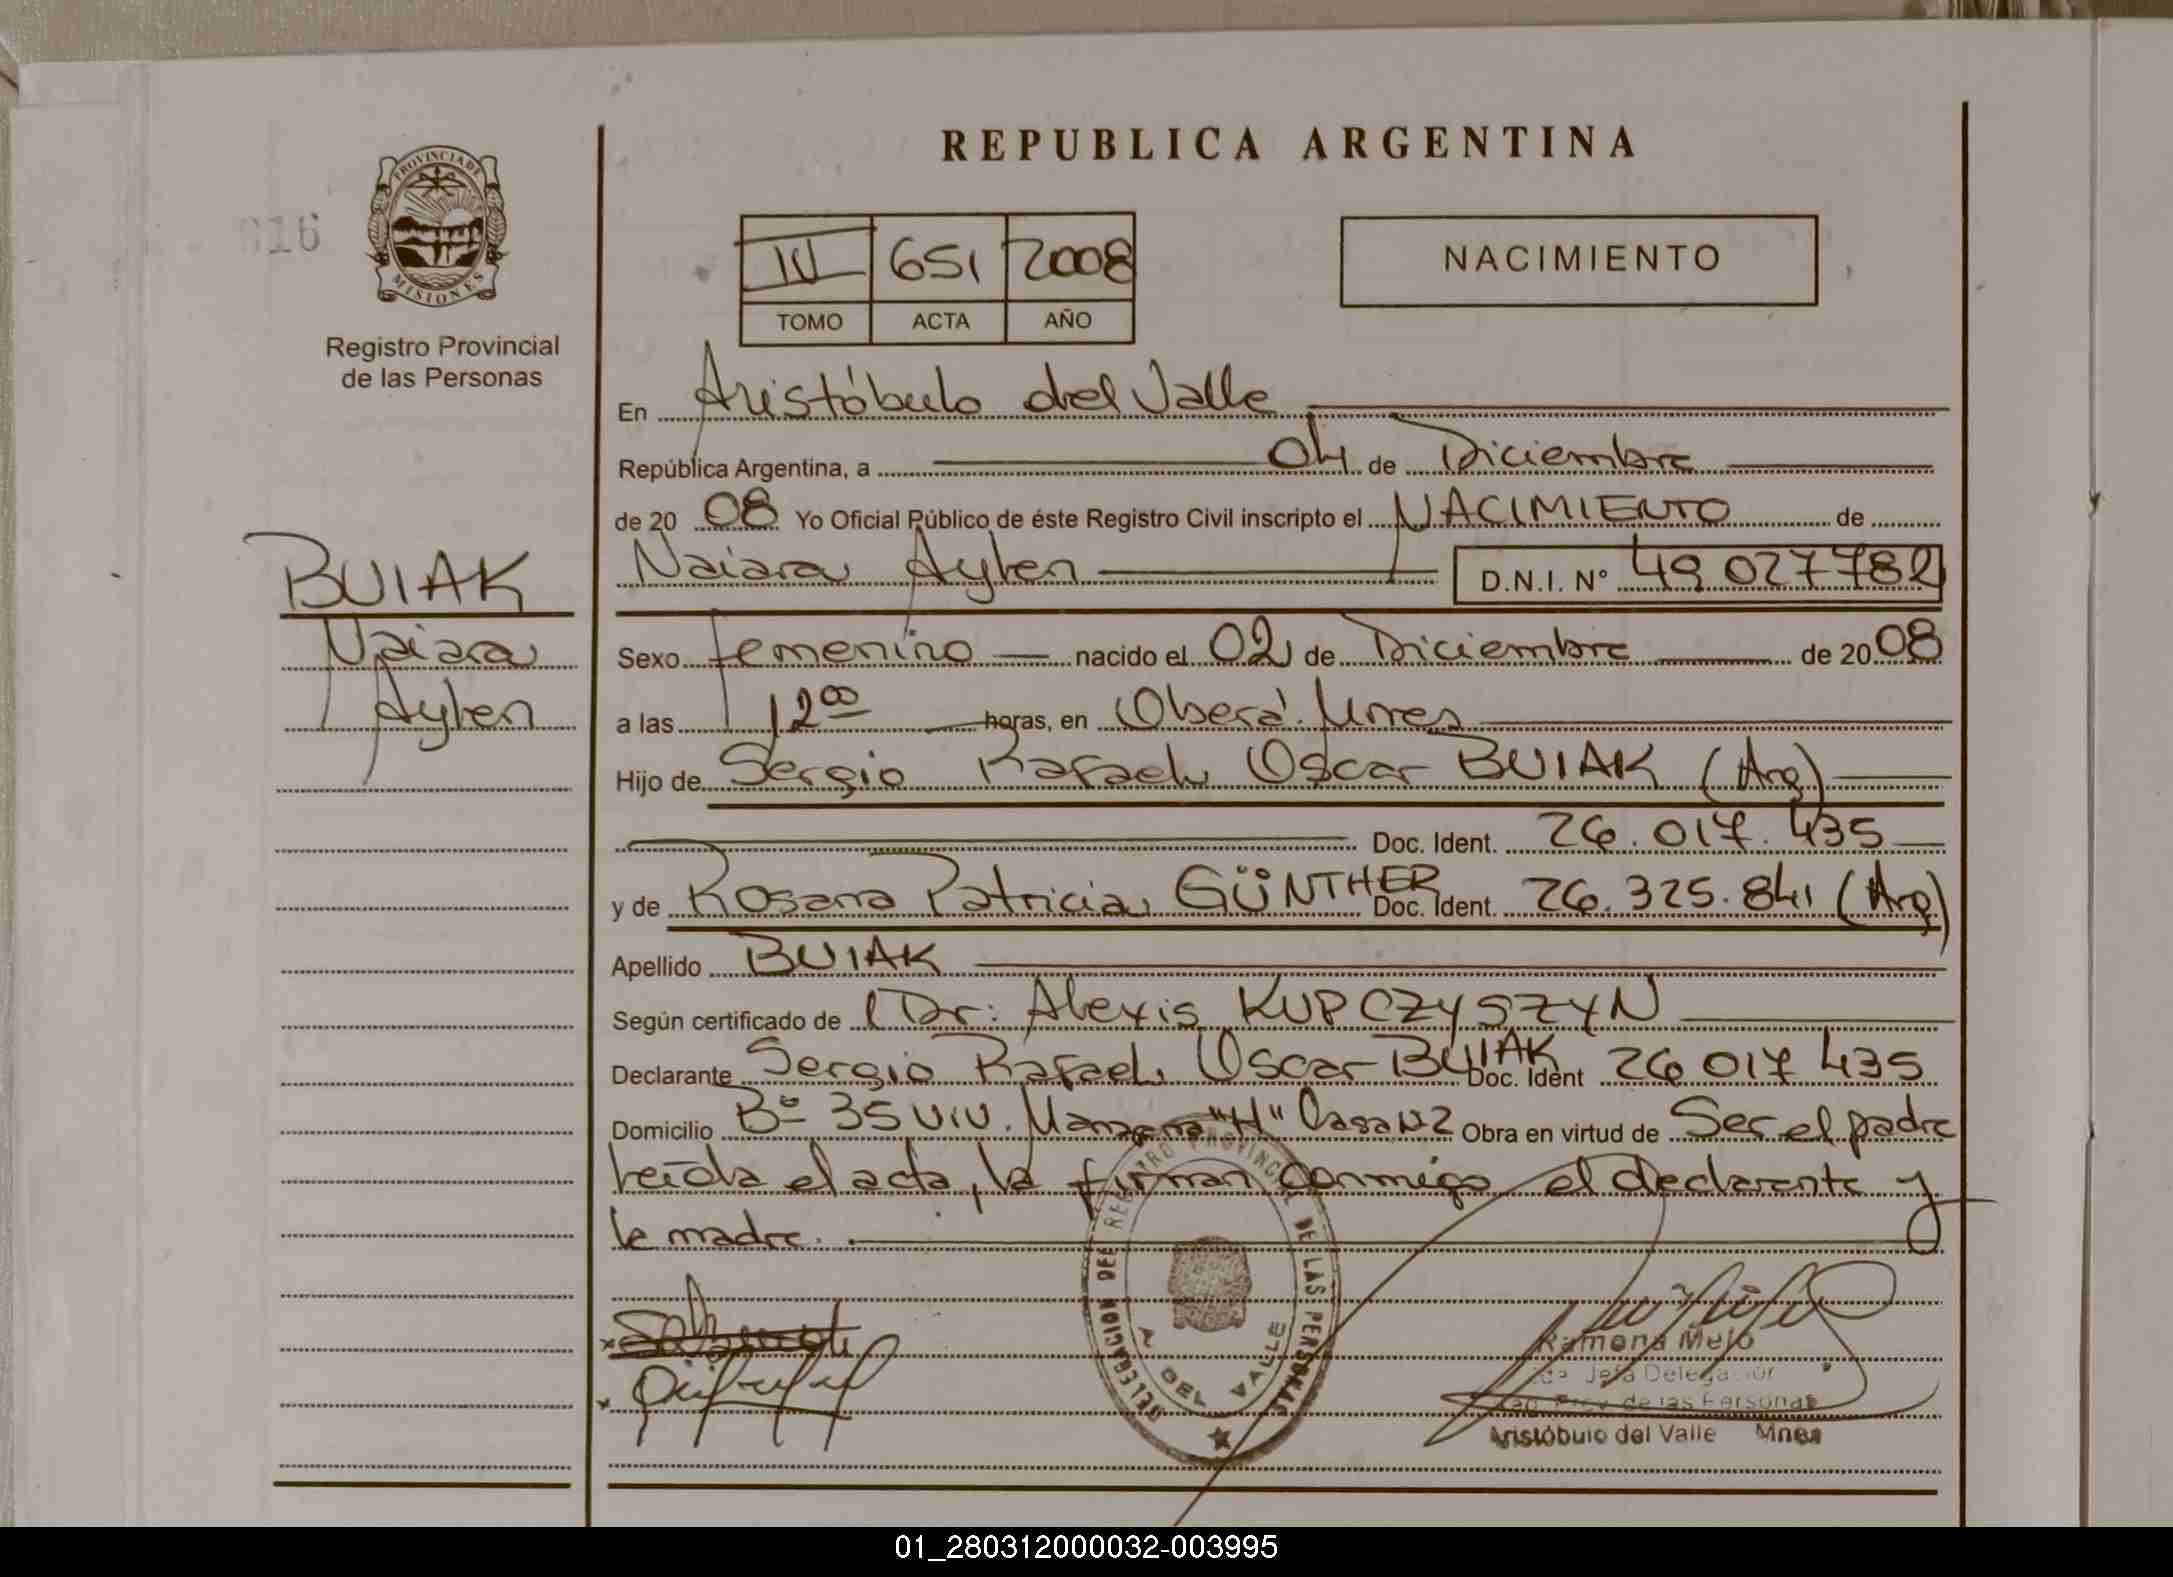 REPUBLICA ARGENTINA
PROVINCIA DE
MISIONES
016
Registro Provincial
de las Personas
651 2008
TOMO ACTA AÑO
NACIMIENTO
En Aristóbulo del Valle
República Argentina, a 04 de Diciembre
de 20 08 Yo Oficial Público de éste Registro Civil inscripto el NACIMIENTO de
Naiara Aylen D.N.I. N° 49.027782
BUIAK
Naiara
Aylen
Sexo femenino nacido el 02 de Diciembre de 20 08
a las 12 00 horas, en Oberá. Mnes
Hijo de Sergio Rafael Oscar BUIAK (Arg)
Doc. Ident. 26.017.435
y de Rosana Patricia GÜNTHER Doc. Ident. 26.325.841 (Arg)
Apellido BUIAK
Según certificado de Dr: Alexis KUPCZYSZYN
Declarante Sergio Rafael Oscar BUIAK Doc. Ident 26 017 435
Domicilio Bº 35 VIV. Manzana "H" Casa Nº2 Obra en virtud de Ser el padre
leída el acta, la firman conmigo el declarante y
la madre.
DELEGACION DEL REGISTRO PROVINCIAL DE LAS PERSONAS
A DEL VALLE
Ramona Melo
Jefa Delegación
Reg. Prov. de las Personas
Aristóbulo del Valle Mnes
01_280312000032-003995